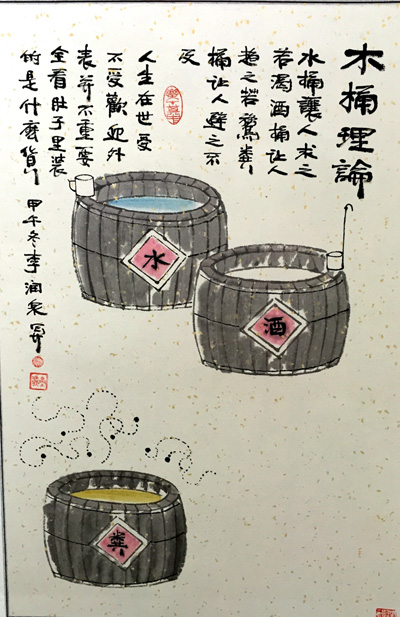 木桶理論
水桶讓人求之
若渴酒桶让人
趋之若鶩粪
桶让人避之不
及
人生在世受
不受歡迎外
表并不重要
全看肚子里装
的是什麼貨 甲午冬李润泉写
水
酒
糞